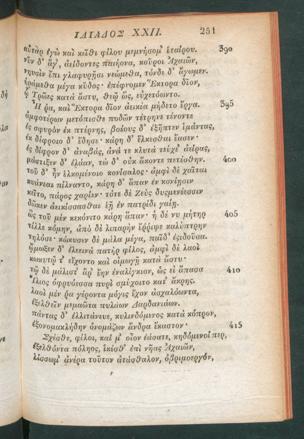 ΙΛΙΑΔΟΣ XXII. 251
αὐτὰρ ἐγὼ καὶ κεῖθι φίλου μεμνήσομ' ἑταίρου. 390
νῦν δ' ἄγ', ἀείδοντες παιήονα, κοῦροι Ἀχαιῶν,
νηυσὶν ἐπὶ γλαφυρῇσι νεώμεθα, τόνδε δ' ἄγωμεν.
ἠράμεθα μέγα κῦδος· ἐπέφνομεν Ἕκτορα δῖον,
ᾧ Τρῶες κατὰ ἄστυ, θεῷ ὣς, εὐχετόωντο.
Ἦ ῥα, καὶ Ἕκτορα δῖον ἀεικέα μήδετο ἔργα. 395
ἀμφοτέρων μετόπισθε ποδῶν τέτρηνε τένοντε
ἐς σφυρὸν ἐκ πτέρνης, βοέους δ' ἐξῆπτεν ἱμάντας,
ἐκ δίφροιο δ' ἔδησε· κάρη δ' ἕλκεσθαι ἔασεν·
ἐς δίφρον δ' ἀναβὰς, ἀνά τε κλυτὰ τεύχε' ἀείρας,
μάστιξεν δ' ἐλάαν, τὼ δ' οὐκ ἄκοντε πετέσθην. 400
τοῦ δ' ἦν ἑλκομένοιο κονίσαλος· ἀμφὶ δὲ χαῖται
κυάνεαι πίλναντο, κάρη δ' ἅπαν ἐν κονίῃσιν
κεῖτο, πάρος χαρίεν· τότε δὲ Ζεὺς δυσμενέεσσιν
δῶκεν ἀεικίσσασθαι ἑῇ ἐν πατρίδι γαίῃ.
ὣς τοῦ μὲν κεκόνιτο κάρη ἅπαν· ἡ δέ νυ μήτηρ 405
τίλλε κόμην, ἀπὸ δὲ λιπαρὴν ἔρριψε καλύπτρην
τηλόσε· κώκυσεν δὲ μάλα μέγα, παῖδ' ἐσιδοῦσα.
ᾤμωξεν δ' ἐλεεινὰ πατὴρ φίλος, ἀμφὶ δὲ λαοὶ
κωκυτῷ τ' εἴχοντο καὶ οἰμωγῇ κατὰ ἄστυ·
τῷ δὲ μάλιστ' ἄρ' ἔην ἐναλίγκιον, ὡς εἰ ἅπασα 410
Ἴλιος ὀφρυόεσσα πυρὶ σμύχοιτο κατ' ἄκρης.
λαοὶ μέν ῥα γέροντα μόγις ἔχον ἀσχαλόωντα,
ἐξελθεῖν μεμαῶτα πυλάων Δαρδανιάων.
πάντας δ' ἐλλιτάνευε, κυλινδόμενος κατὰ κόπρον,
ἐξονομακλήδην ὀνομάζων ἄνδρα ἕκαστον· 415
Σχέσθε, φίλοι, καί μ' οἶον ἐάσατε, κηδόμενοί περ,
ἐξελθόντα πόληος, ἱκέσθ' ἐπὶ νῆας Ἀχαιῶν,
λίσσωμ' ἀνέρα τοῦτον ἀτάσθαλον, ὀβριμοεργὸν,